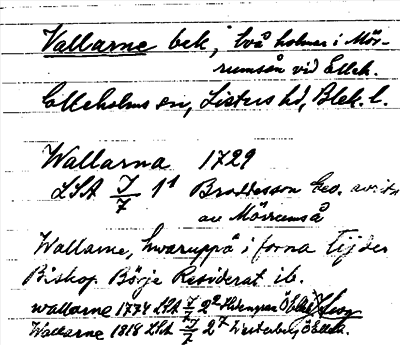 Vallarne bek, två holmar i Mör-
rumsån vid Elleh.
Elleholms sn, Listers hd, Blek. l.
Wallarna 1729
LSA J/7 1¹ Brodderson Geo.
av Mörrumså
Wallarne, hwaruppå i forna tijder
Biskop Börje Residerat ib.
Wallarne 1774 LSA J/7 2²
Wallarne 1818 LSA J/7 2⁷ Westerberg Elleh.